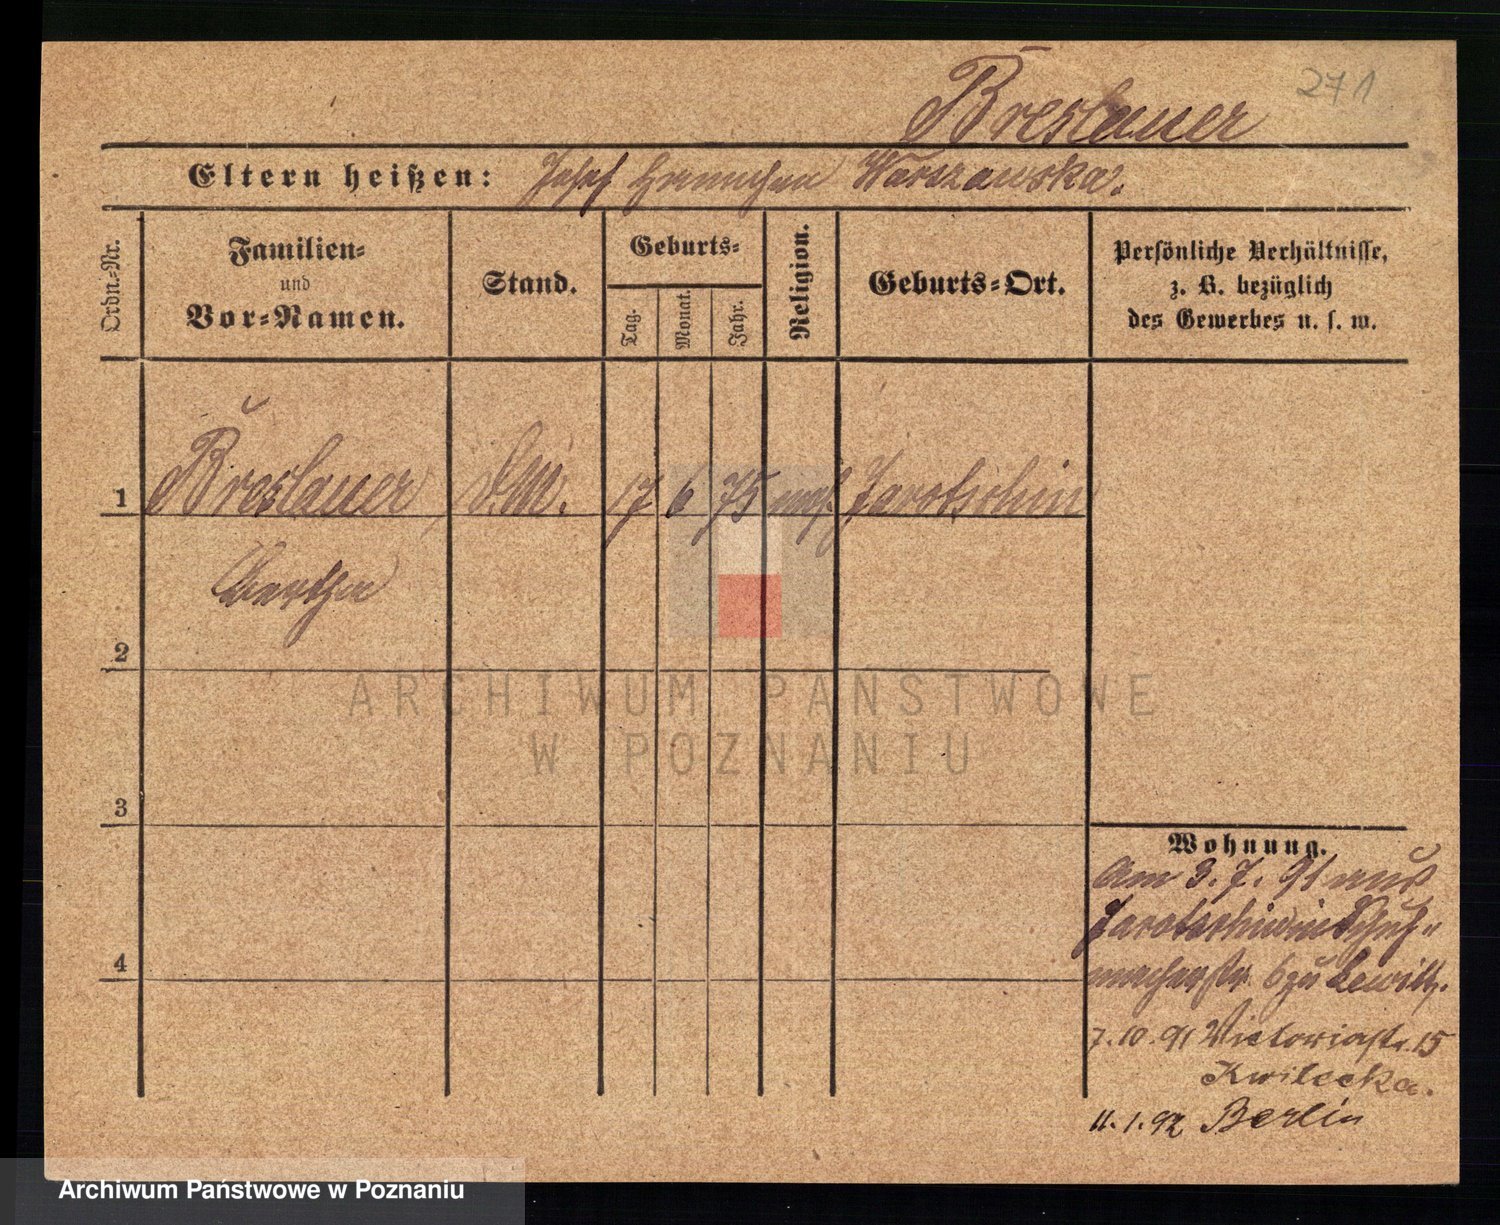 271
Breslauer
Eltern heißen: Josef Warszawska.
Ordn.-Nr.
Familien-
und
Vor-Namen.
Stand.
Geburts-
Tag.
Monat.
Jahr.
Religion.
Geburts-Ort.
Persönliche Verhältnisse,
z. B. bezüglich
des Gewerbes u. s. w.
1 Breslauer, D.M. 17 6 75 mos. Jarotschin
Bertha
2
3
4
Wohnung.
Am 3. 7. 91 aus
Jarotschin Schuh-
macherstr. 6 zu Lewitz.
7. 10. 91 Victoriastr. 15
Kwilecka.
11. 1. 92 Berlin
ARCHIWUM PAŃSTWOWE
W POZNANIU
Archiwum Państwowe w Poznaniu